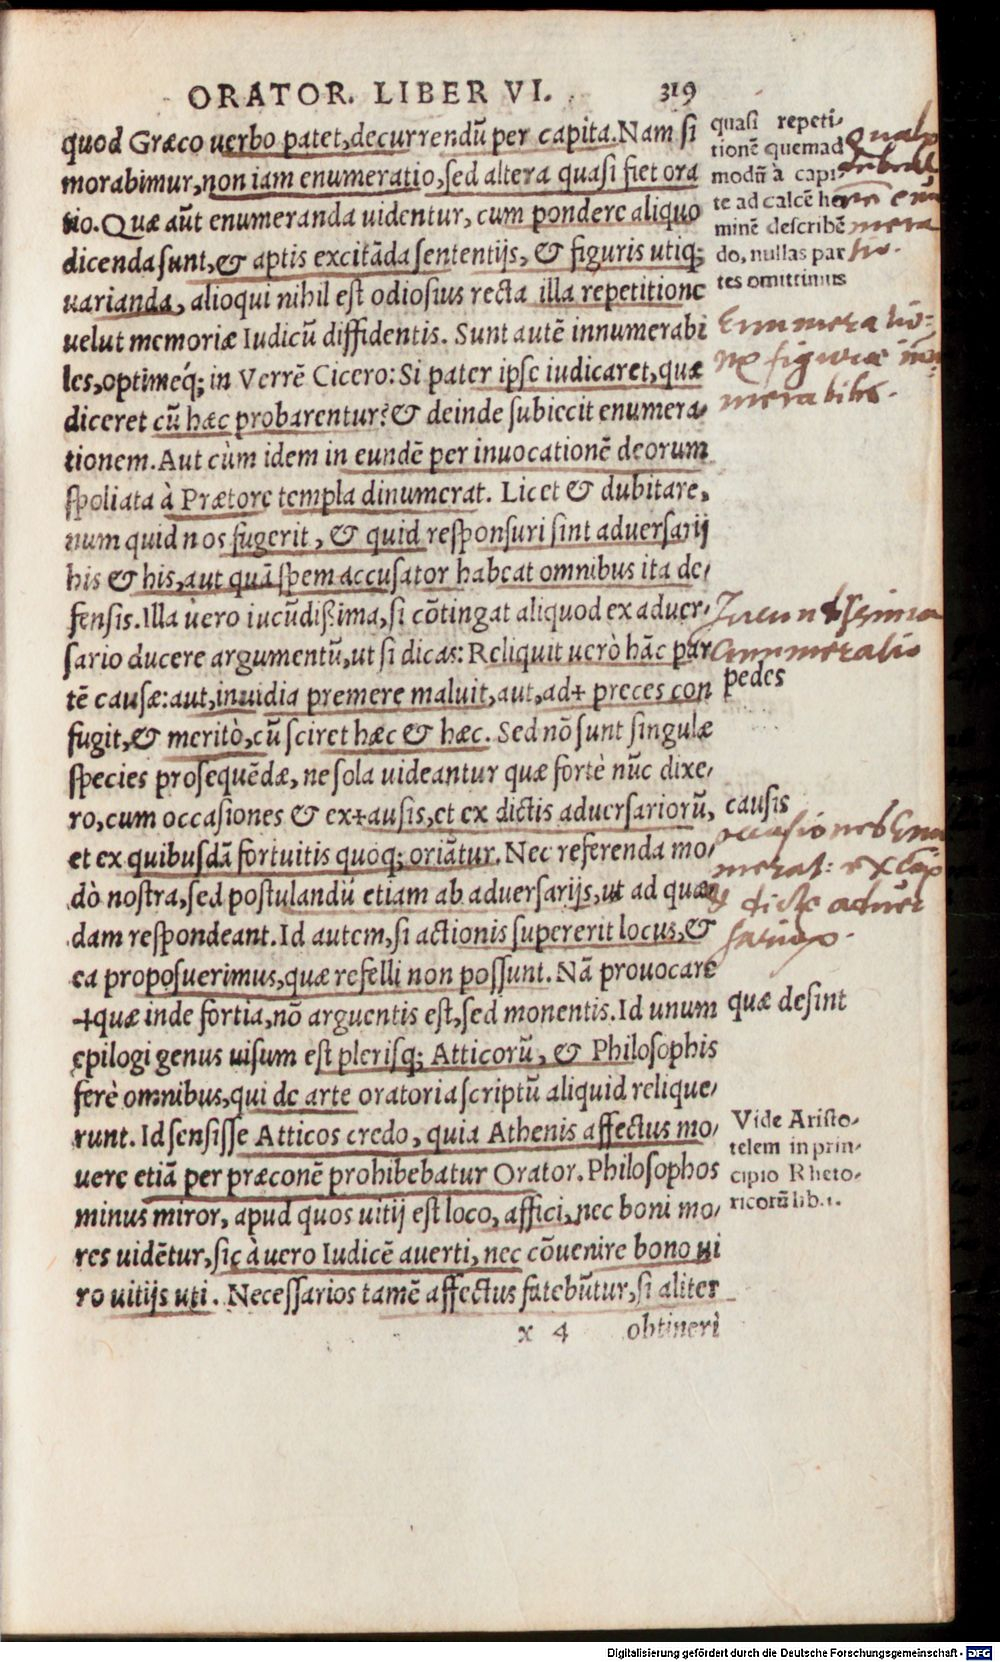 ORATOR. LIBER VI. 319
quod Græco uerbo patet, decurrendũ per capita. Nam si
morabimur, non iam enumeratio, sed altera quasi fiet ora
tio. Quæ aũt enumeranda uidentur, cum pondere aliquo
dicenda sunt, & aptis excitãda sententijs, & figuris utiq;
uarianda, alioqui nihil est odiosius recta illa repetitione
uelut memoriæ Iudicũ diffidentis. Sunt autẽ innumerabi
les, optimeq́; in Verrẽ Cicero: Si pater ipse iudicaret, quæ
diceret cũ hæc probarentur? & deinde subiecit enumera-
tionem. Aut cùm idem in eundẽ per inuocationẽ deorum
spoliata à Prætore templa dinumerat. Licet & dubitare,
num quid nos fugerit, & quid responsuri sint aduersarij
his & his, aut quã spem accusator habeat omnibus ita de-
fensis. Illa uero iucũdißima, si cõtingat aliquod ex aduer-
sario ducere argumentũ, ut si dicas: Reliquit uerò hãc par
tẽ causæ: aut, inuidia premere maluit, aut, ad+ preces con
fugit, & meritò, cũ sciret hæc & hæc. Sed nõ sunt singulæ
species prosequẽdæ, ne sola uideantur quæ fortè nũc dixe-
ro, cum occasiones & ex+ausis, et ex dictis aduersariorũ,
et ex quibusdã fortuitis quoq; oriãtur. Nec referenda mo-
dò nostra, sed postulandũ etiam ab aduersarijs, ut ad quæ
dam respondeant. Id autem, si actionis supererit locus, &
ea proposuerimus, quæ refelli non possunt. Nã prouocare
+quæ inde fortia, nõ arguentis est, sed monentis. Id unum
epilogi genus uisum est plerisq; Atticorũ, & Philosophis
ferè omnibus, qui de arte oratoria scriptũ aliquid relique-
runt. Id sensisse Atticos credo, quia Athenis affectus mo-
uere etiã per præconẽ prohibebatur Orator. Philosophos
minus miror, apud quos uitij est loco, affici, nec boni mo-
res uidẽtur, sic à uero Iudicẽ auerti, nec cõuenire bono ui
ro uitijs uti. Necessarios tamẽ affectus fatebũtur, si aliter
x 4 obtineri
quasi repeti-
tionẽ quemad
modũ à capi
te ad calcẽ ho
minẽ describẽ
do, nullas par
tes omittimus
Enumeratio-
figuræ innu
merabiles.
Jucundissima
Annumeratio
pedes
causis
occasiones Enu
merat: ex
dictis aduer
sariorum.
quæ desint
Vide Aristo-
telem in prin-
cipio Rheto-
ricorũ lib. 1.
Digitalisierung gefördert durch die Deutsche Forschungsgemeinschaft - DFG